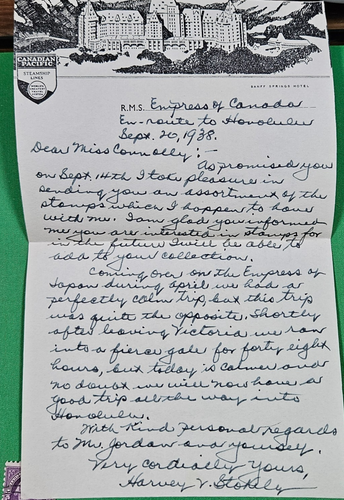 CANADIAN PACIFIC
STEAMSHIP LINES
BANFF SPRINGS HOTEL
R.M.S. Empress of Canada
En-route to Honolulu
Sept. 20, 1938.
Dear Miss Connolly:-
As promised you
on Sept. 14th I take pleasure in
sending you an assortment of the
stamps which I happen to have
with me. I am glad you informed
me you are interested in stamps for
in the future I will be able to
add to your collection.
Coming over on the Empress of
Japan during April we had a
perfectly calm trip, but this trip
was quite the opposite. Shortly
after leaving Victoria we ran
into a fierce gale for forty eight
hours, but today is calmer and
no doubt we will now have a
good trip all the way into
Honolulu.
With Kind personal regards
to Mr. Jordan and yourself.
Very cordially yours,
Harvey V.